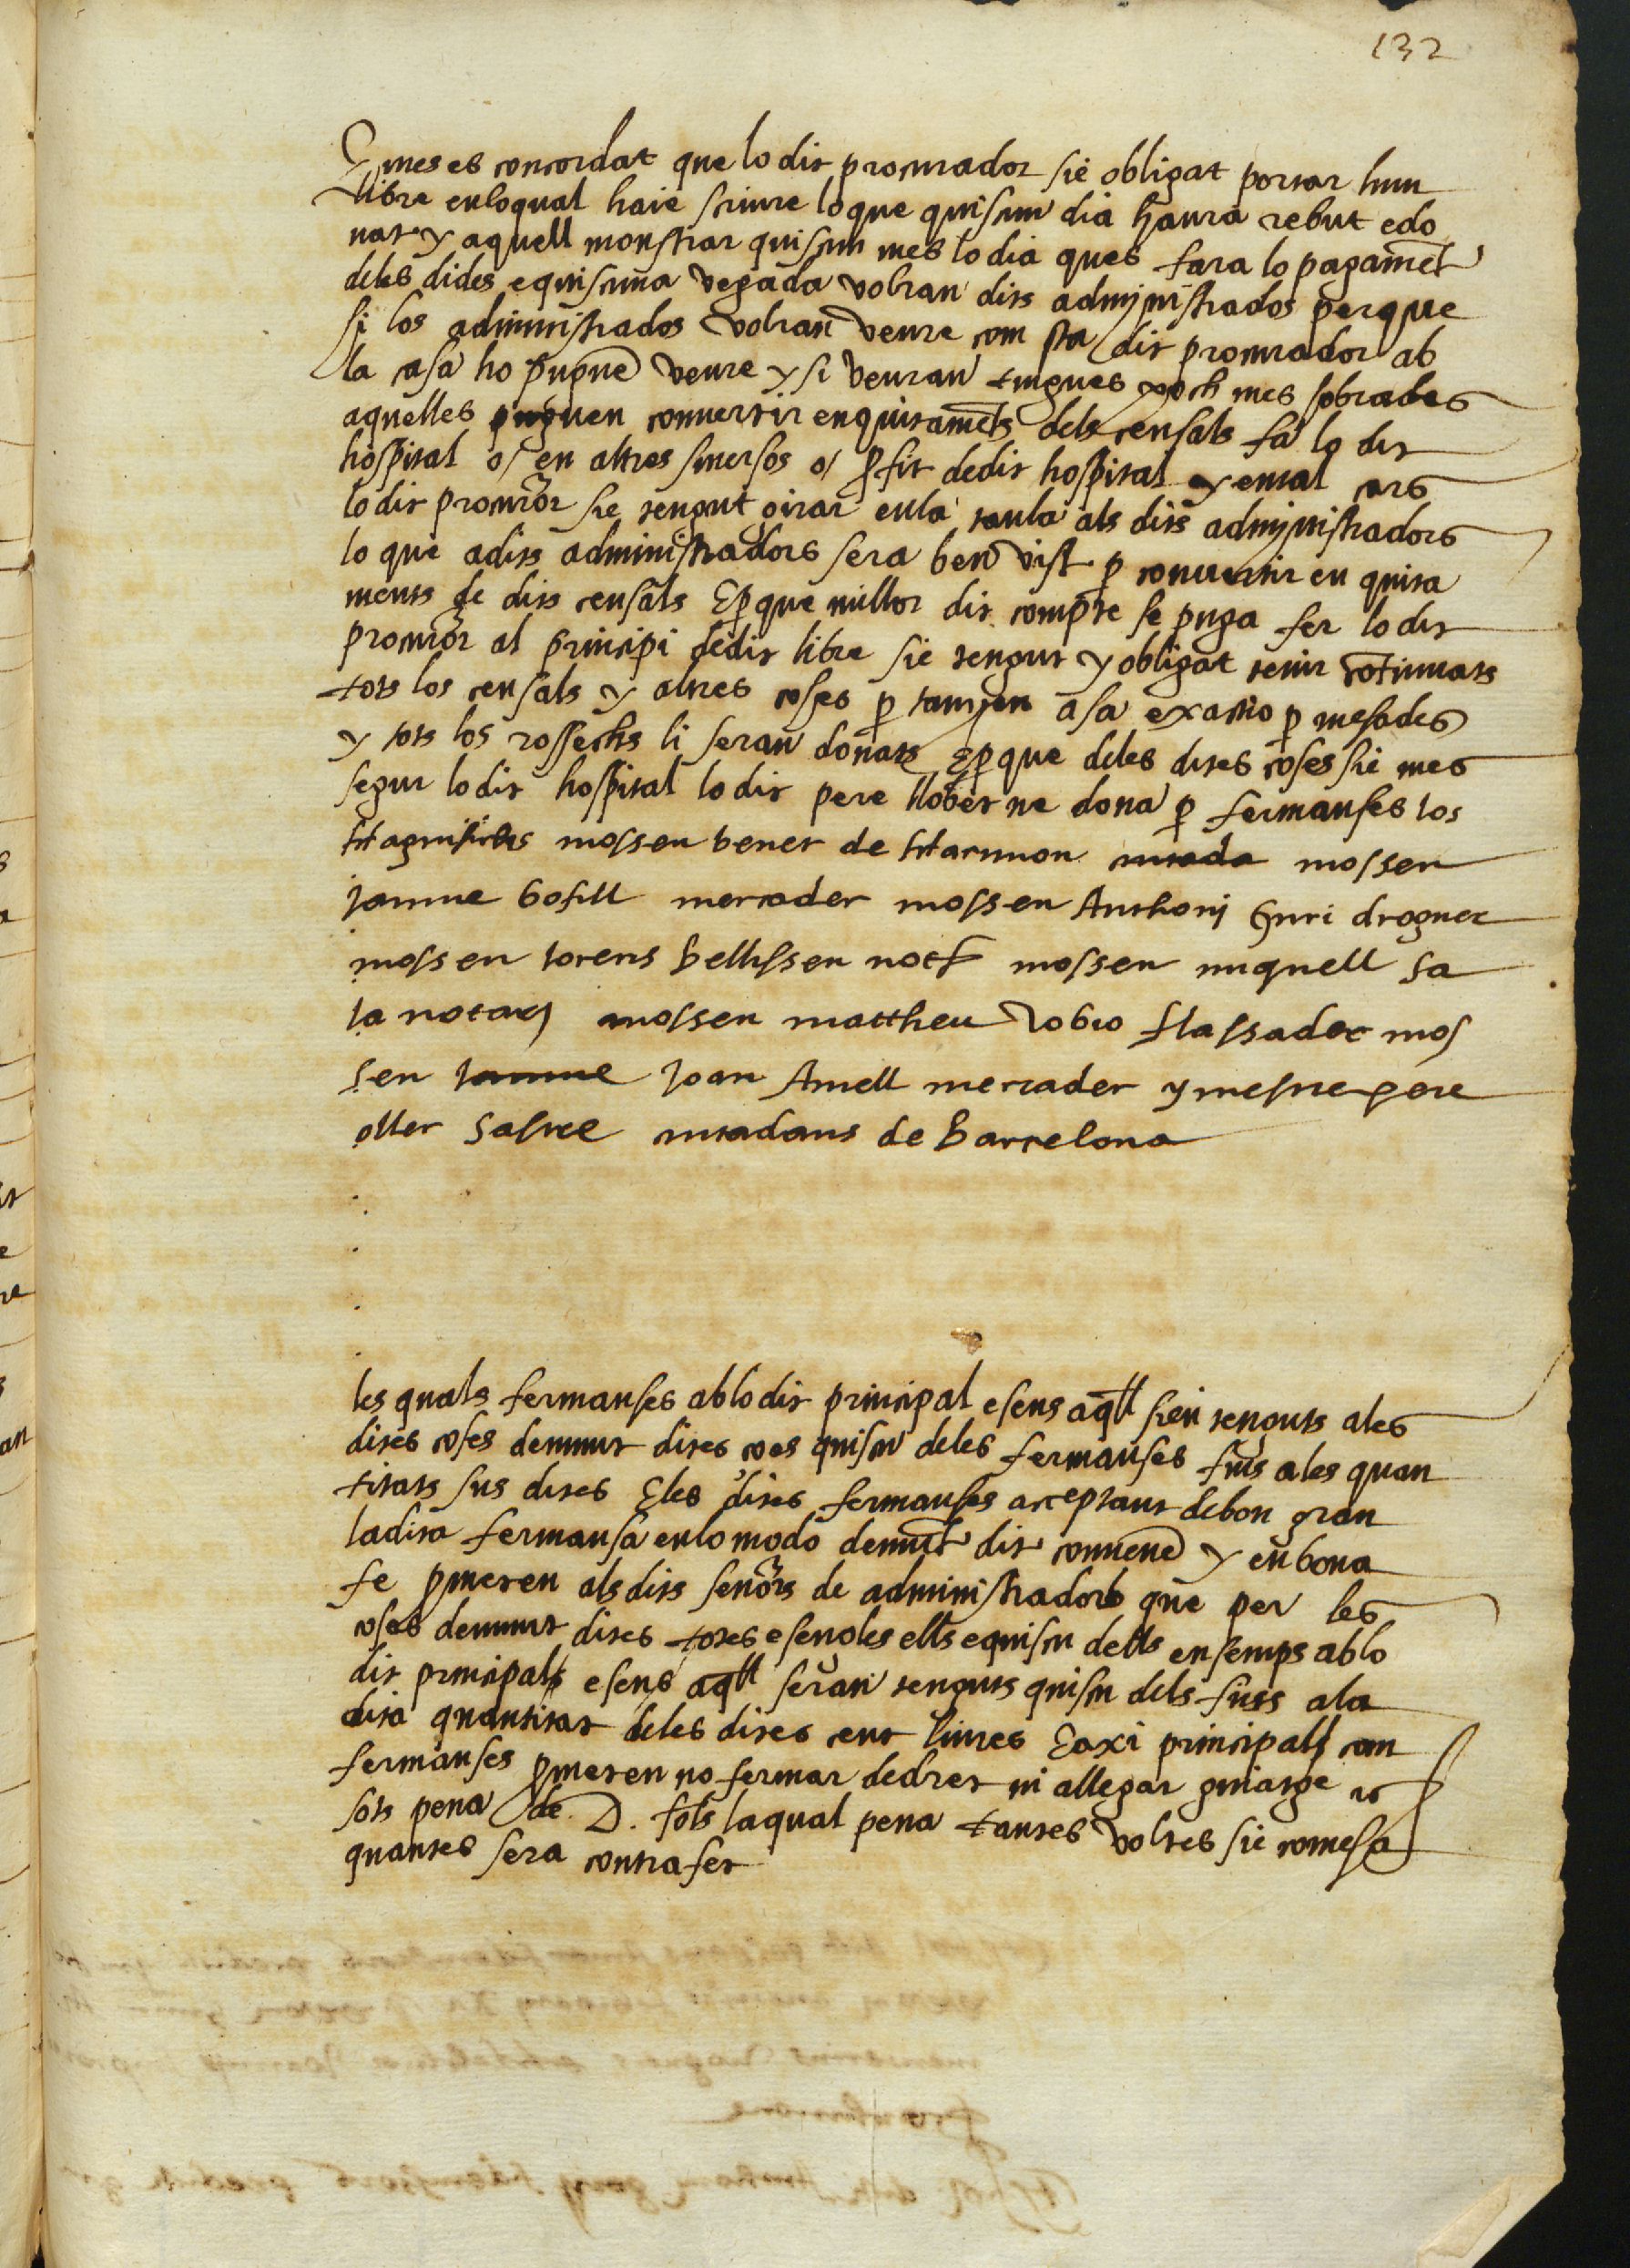 132
E mes es concordat que lo dit procurador sie obligat portar hun
libre en lo qual haie scriure lo que quiscun dia haura rebut e do
nat y aquell monstrar quiscun mes lo dia ques fara lo pagamẽt
deles dides e quiscuna vegada volran dits administrados perque
si los administrados volran veure com sta dit procurador ab
la casa ho pugue veure y si veuran tingues poch mes sobrades
aquelles puguen convertir en quitamẽts dels censals fa lo dit
hospital o en altres smersos o ꝓfit de dit hospital y en tal cars
lo dit procuror sie tengut girar en la taula als dits administradors
lo que a dits administradors sera ben vist ꝑ convertir en quita
ments de dits censals E ꝑ que millor dit compte se puga fer lo dit
procuror al principi de dit libre sie tengut y obligat tenir cõtinuats
tots los censals y altres coses ꝑ tanyen a sa exactio ꝑ mesades
y tots los rossechs li seran donats E ꝑ que deles dites coses sie mes
segur lo dit hospital lo dit pere llobet ne dona ꝑ fermanses los
Magnifichs mossen benet de Marimon mossen
Jaume bofill mercader mossen Anthonj droguer
mossen lorens bellissen notr mossen miquell sa
la notarj mossen mattheu robio flassader mos
sen Jaume Joan Amell mercader y mestre pere
oller sastre ciutadans de barcelona
les quals fermanses ab lo dit principal e sens aqll sien tenguts ales
dites coses demunt dites ço es quiscu deles fermanses fins ales quan
titats sus dites E les dites fermanses acceptant de bon grau
la dita fermansa en lo modo demũt dit convene y en bona
fe ꝓmeten als dits señors de administradors que per les
coses demunt dites totes e sengles ells e quiscu dells ensemps ab lo
dit principal e sens aqll seran tenguts quiscu dels fins a la
dita quantitat deles dites cent liures E axi principall com
fermanses ꝓmeten no fermar de dret ni allegar guiatge
sots pena de .D. sols la qual pena tantes voltes sie comesa
quantes sera contrafet